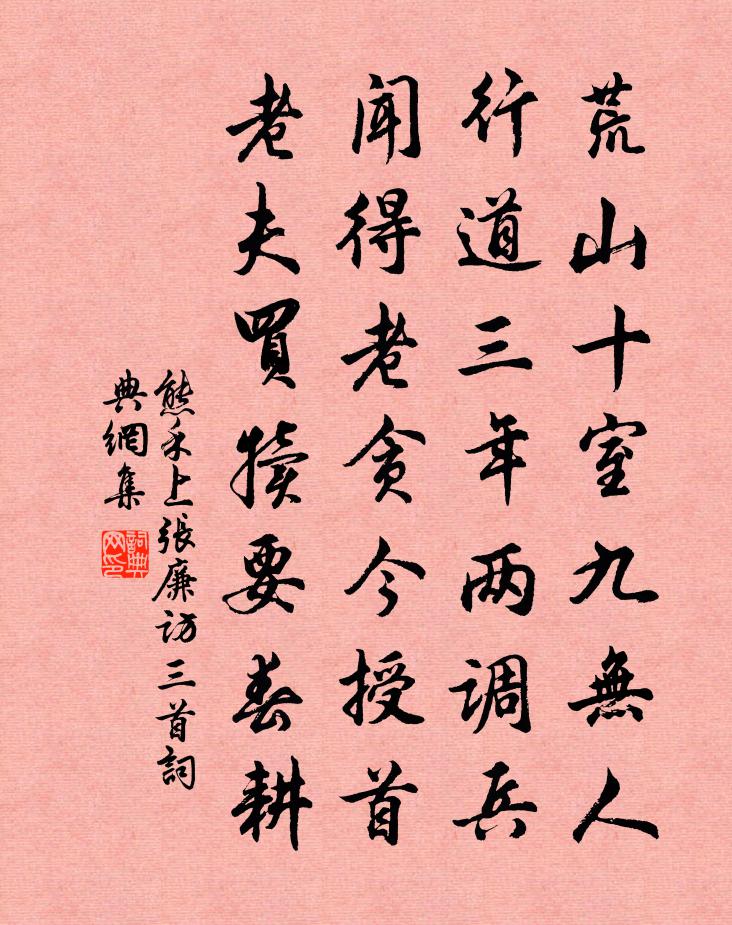 荒山十室九無人
行道三年两调兵
闻得老贪今授首
老夫買犢要春耕
熊禾上張廉访三首詞
典網集
詞典网印